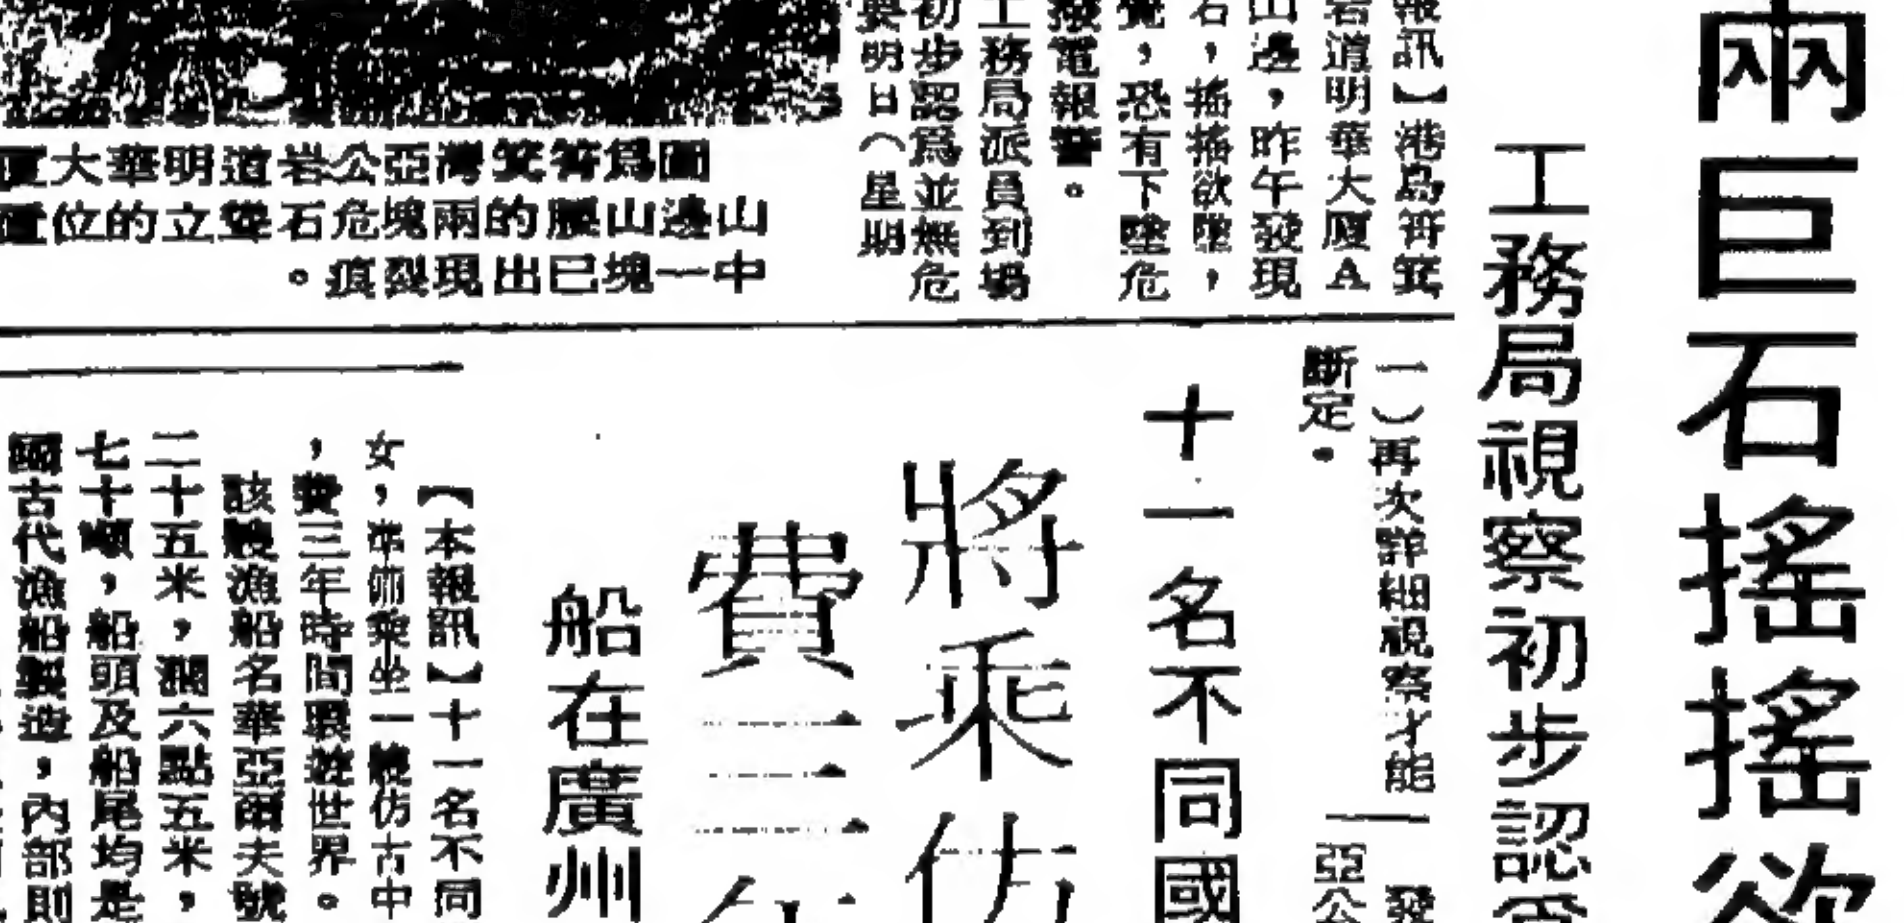 兩巨石搖搖欲
工務局視察初步認爲
報訊】港島筲箕
岩道明華大廈A
山邊，昨午發現
石，搖搖欲墮，
覺，恐有下墮危
撥電報警。
工務局派員到場
初步認爲並無危
要明日（星期
一）再次詳細視察才能
斷定。
圖爲筲箕灣亞公岩道明華大廈
山邊山腰的兩塊危石聳立的位置
中一塊已出現裂痕。
亞公
十一名不同國
將乘仿
費三年
船在廣州
【本報訊】十一名不同
女，準備乘坐一艘仿古中
，費三年時間環遊世界。
該艘漁船名華亞爾夫號
二十五米，濶六點五米，
七十噸，船頭及船尾均是
國古代漁船製造，內部則